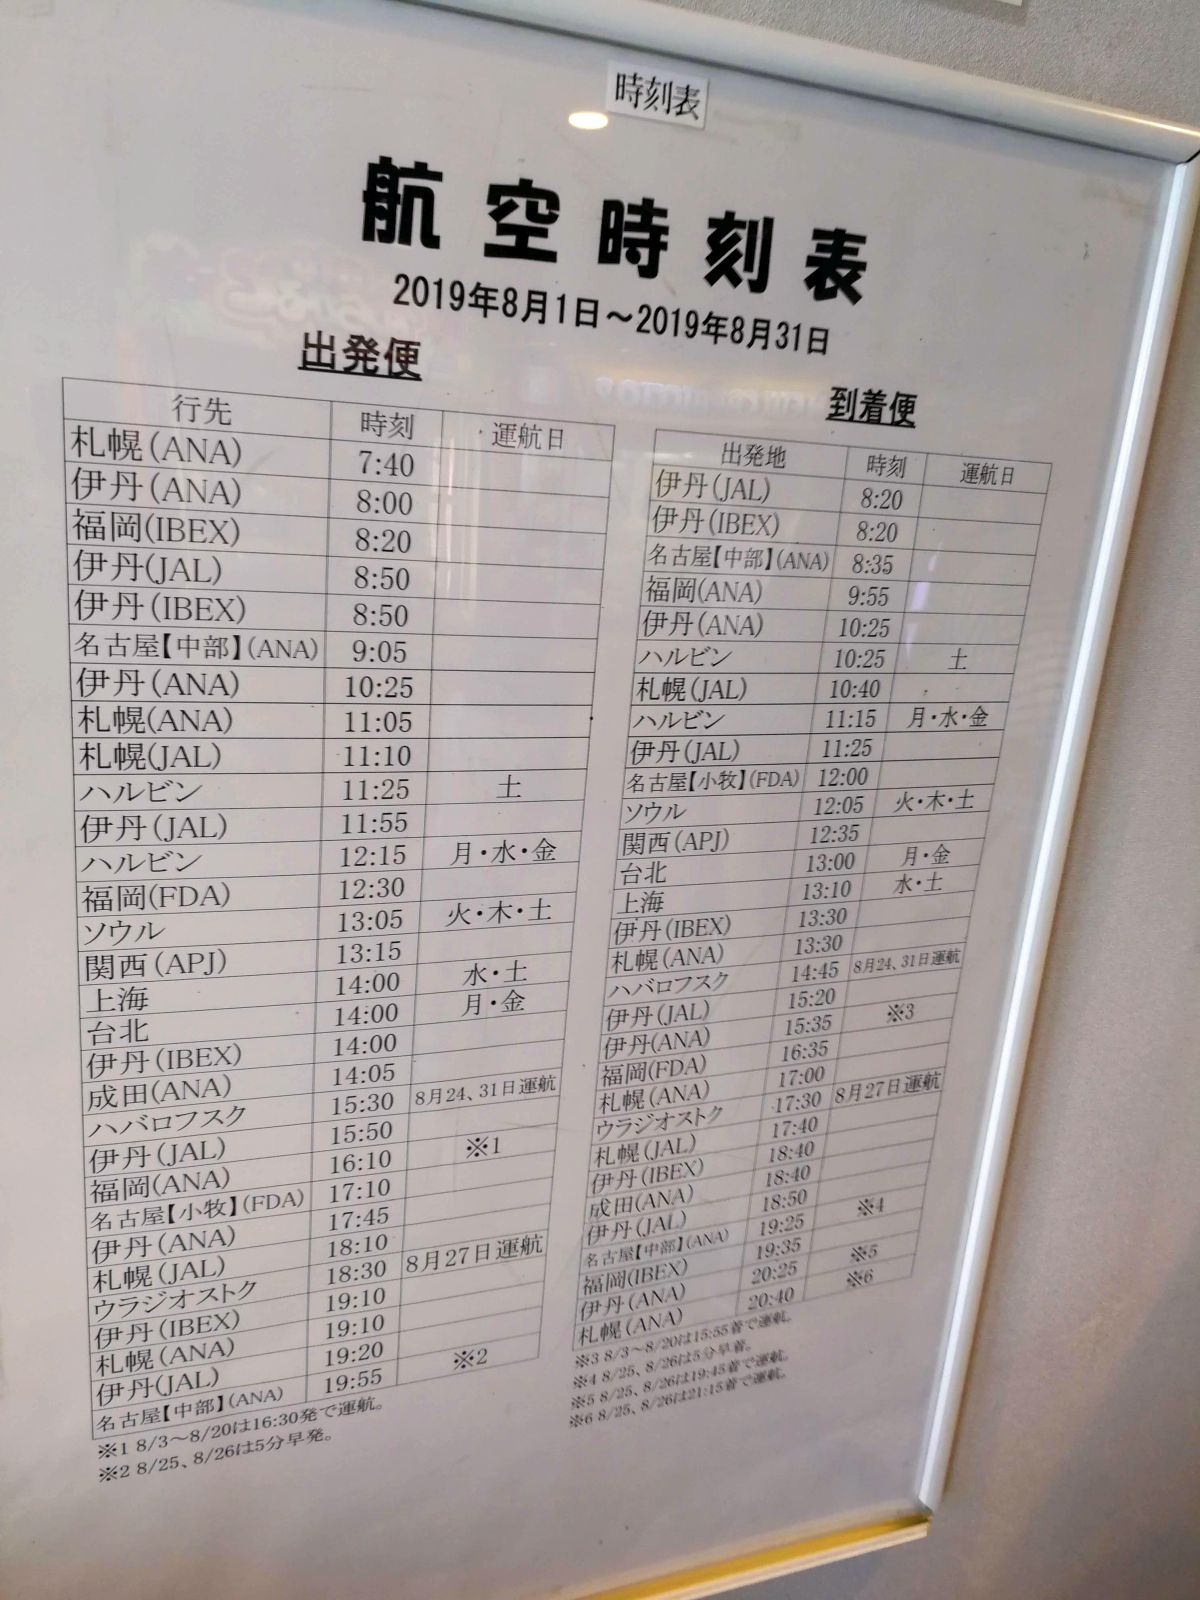 時刻表
航空時刻表
2019年8月1日～2019年8月31日
出発便
行先 時刻 運航日
札幌(ANA) 7:40
伊丹(ANA) 8:00
福岡(IBEX) 8:20
伊丹(JAL) 8:50
伊丹(IBEX) 8:50
名古屋【中部】(ANA) 9:05
伊丹(ANA) 10:25
札幌(ANA) 11:05
札幌(JAL) 11:10
ハルビン 11:25 土
伊丹(JAL) 11:55
ハルビン 12:15 月・水・金
福岡(FDA) 12:30
ソウル 13:05 火・木・土
関西(APJ) 13:15
上海 14:00 水・土
台北 14:00 月・金
伊丹(IBEX) 14:00
成田(ANA) 14:05
ハバロフスク 15:30 8月24、31日運航
伊丹(JAL) 15:50
福岡(ANA) 16:10 ※1
名古屋【小牧】(FDA) 17:10
伊丹(ANA) 17:45
札幌(JAL) 18:10
ウラジオストク 18:30 8月27日運航
伊丹(IBEX) 19:10
札幌(ANA) 19:10
伊丹(JAL) 19:20
名古屋【中部】(ANA) 19:55 ※2
※1 8/3～8/20は16:30発で運航。
※2 8/25、8/26は5分早発。
到着便
出発地 時刻 運航日
伊丹(JAL) 8:20
伊丹(IBEX) 8:20
名古屋【中部】(ANA) 8:35
福岡(ANA) 9:55
伊丹(ANA) 10:25
ハルビン 10:25 土
札幌(JAL) 10:40
ハルビン 11:15 月・水・金
伊丹(JAL) 11:25
名古屋【小牧】(FDA) 12:00
ソウル 12:05 火・木・土
関西(APJ) 12:35
台北 13:00 月・金
上海 13:10 水・土
伊丹(IBEX) 13:30
札幌(ANA) 13:30
ハバロフスク 14:45 8月24、31日運航
伊丹(JAL) 15:20
伊丹(ANA) 15:35 ※3
福岡(FDA) 16:35
札幌(ANA) 17:00
ウラジオストク 17:30 8月27日運航
札幌(JAL) 17:40
伊丹(IBEX) 18:40
成田(ANA) 18:40
伊丹(JAL) 18:50
名古屋【中部】(ANA) 19:25 ※4
福岡(IBEX) 19:35
伊丹(ANA) 20:25 ※5
札幌(ANA) 20:40 ※6
※3 8/3～8/20は15:55着で運航。
※4 8/25、8/26は5分早着。
※5 8/25、8/26は19:45着で運航。
※6 8/25、8/26は21:15着で運航。